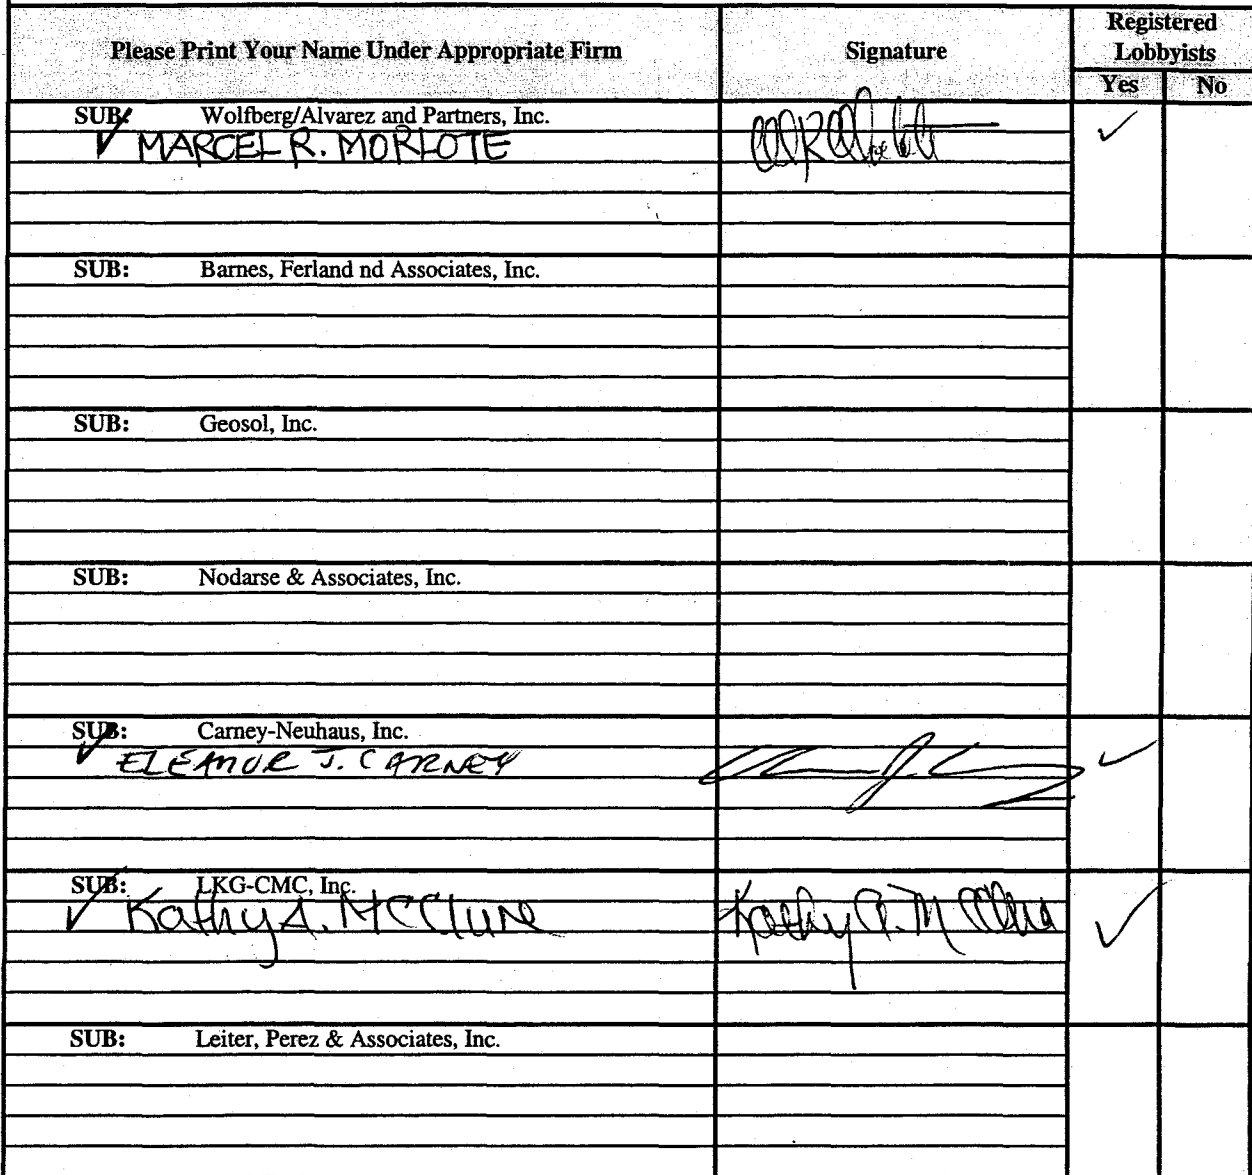 Please Print Your Name Under Appropriate Firm
Signature
Registered
Lobbyists
Yes No
SUB: Wolfberg/Alvarez and Partners, Inc.
✓ MARCEL R. MORLOTE ✓
SUB: Barnes, Ferland nd Associates, Inc.
SUB: Geosol, Inc.
SUB: Nodarse & Associates, Inc.
SUB: Carney-Neuhaus, Inc.
✓ ELEANOR J. CARNEY ✓
SUB: LKG-CMC, Inc.
✓ Kathy A. McClure Kathy A. McClure ✓
SUB: Leiter, Perez & Associates, Inc.